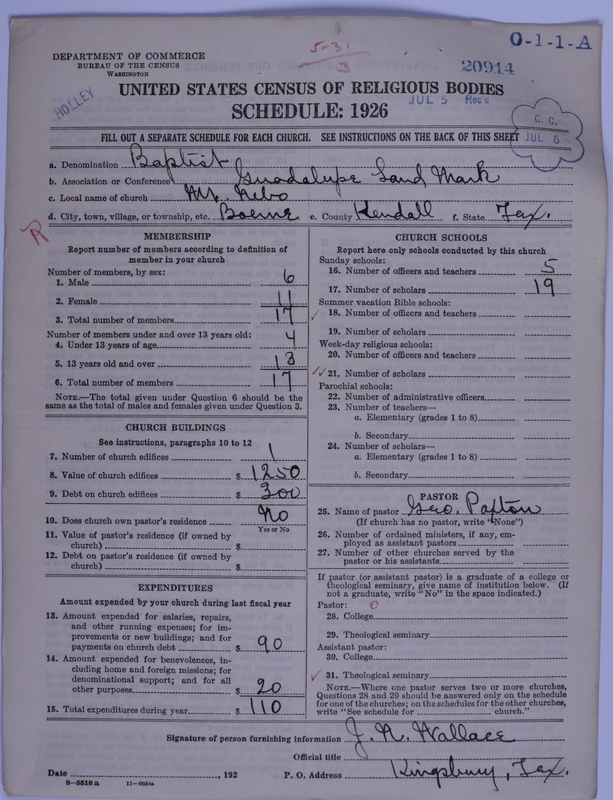 O-1-1-A
5-31
3
20914
DEPARTMENT OF COMMERCE
BUREAU OF THE CENSUS
WASHINGTON
HOLLEY
UNITED STATES CENSUS OF RELIGIOUS BODIES
JUL 5 Rec'd
SCHEDULE: 1926
C. C.
JUL 5
FILL OUT A SEPARATE SCHEDULE FOR EACH CHURCH. SEE INSTRUCTIONS ON THE BACK OF THIS SHEET
a. Denomination Baptist
b. Association or Conference Guadalupe Land Mark
c. Local name of church Mt. Nebo
d. City, town, village, or township, etc. Boerne e. County Kendall f. State Tex.
R
MEMBERSHIP
Report number of members according to definition of
member in your church
Number of members, by sex:
1. Male 6
2. Female 11
3. Total number of members 17
Number of members under and over 13 years old:
4. Under 13 years of age 4
5. 13 years old and over 13
6. Total number of members 17
NOTE.—The total given under Question 6 should be
same as the total of males and females given under Question 3.
CHURCH BUILDINGS
See instructions, paragraphs 10 to 12
7. Number of church edifices 1
8. Value of church edifices $ 1250
9. Debt on church edifices $ 300
10. Does church own pastor's residence No
Yes or No
11. Value of pastor's residence (if owned by
church) $
12. Debt on pastor's residence (if owned by
church) $
EXPENDITURES
Amount expended by your church during last fiscal year
13. Amount expended for salaries, repairs,
and other running expenses; for im-
provements or new buildings; and for
payments on church debt $ 90
14. Amount expended for benevolences, in-
cluding home and foreign missions; for
denominational support; and for all
other purposes $ 20
15. Total expenditures during year $ 110
CHURCH SCHOOLS
Report here only schools conducted by this church
Sunday schools:
16. Number of officers and teachers 5
17. Number of scholars 19
Summer vacation Bible schools:
18. Number of officers and teachers
19. Number of scholars
Week-day religious schools:
20. Number of officers and teachers
21. Number of scholars
Parochial schools:
22. Number of administrative officers
23. Number of teachers—
a. Elementary (grades 1 to 8)
b. Secondary
24. Number of scholars—
a. Elementary (grades 1 to 8)
b. Secondary
PASTOR
25. Name of pastor Geo. Paxton
(If church has no pastor, write "None")
26. Number of ordained ministers, if any, em-
ployed as assistant pastors
27. Number of other churches served by the
pastor or his assistants
If pastor (or assistant pastor) is a graduate of a college or
theological seminary, give name of institution below. (If
not a graduate, write "No" in the space indicated.)
Pastor: 0
28. College
29. Theological seminary
Assistant pastor:
30. College
31. Theological seminary
NOTE.—Where one pastor serves two or more churches,
Questions 28 and 29 should be answered only on the schedule
for one of the churches; on the schedules for the other churches,
write "See schedule for church."
Signature of person furnishing information J. N. Wallace
Official title
Date , 192 P. O. Address Kingsbury, Tex.
8—5518 a